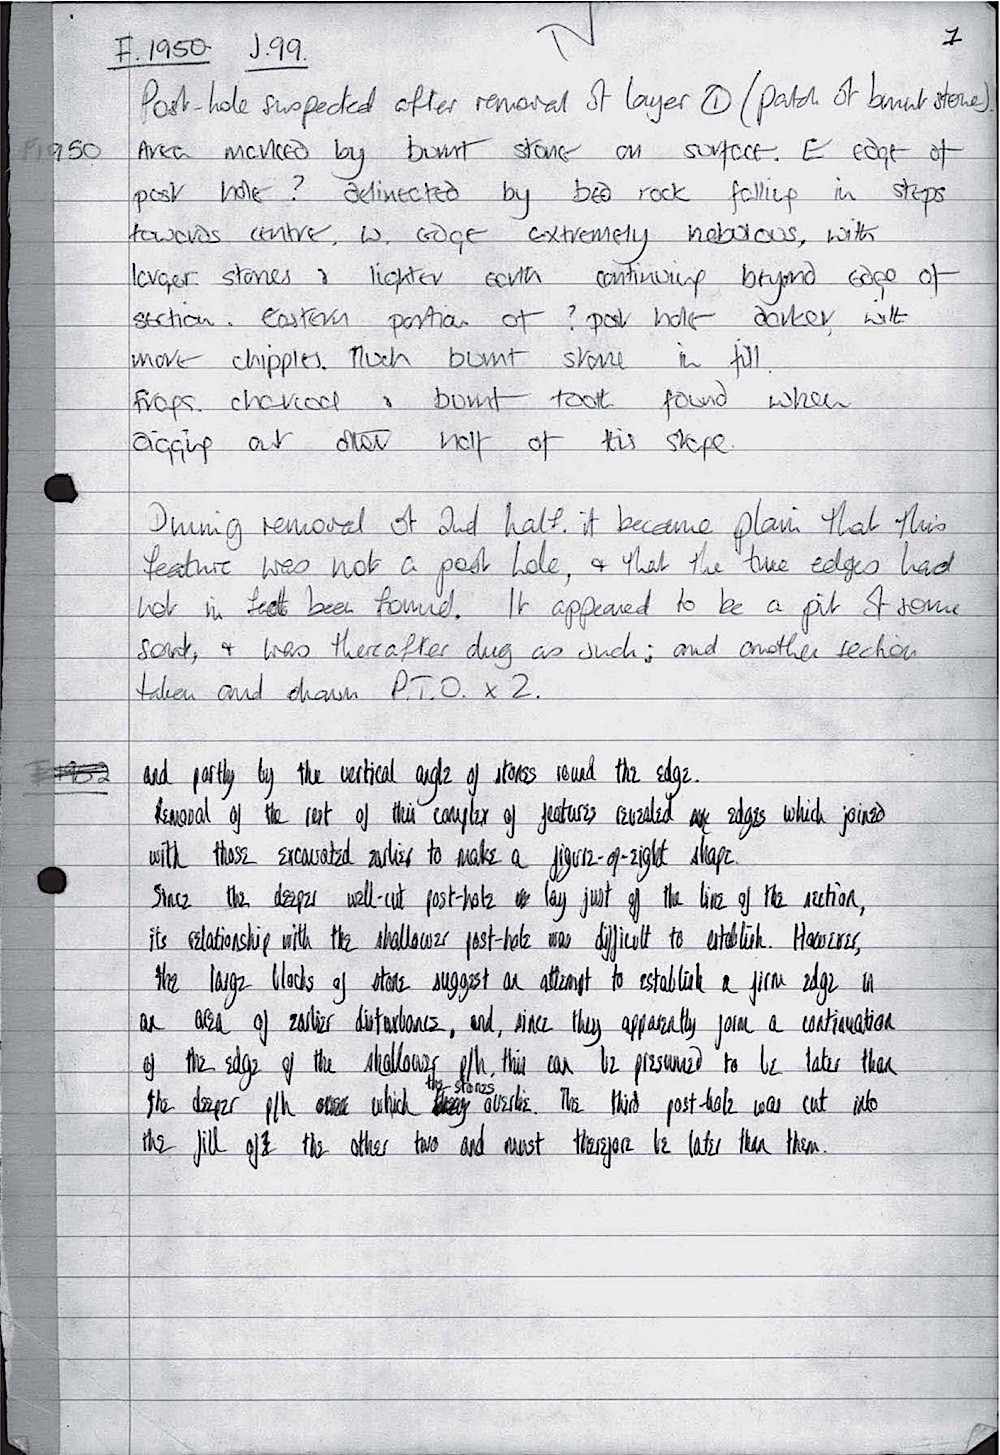 F.1950 J.99. 1
Post-hole suspected after removal of layer ① (patch of burnt stone).
F1950 Area marked by burnt stone on surface. E edge of
post hole? delineated by bed rock falling in steps
towards centre. W. edge extremely nebulous, with
larger stones & lighter earth continuing beyond edge of
section. Eastern portion of ? post hole darker, with
more chipples. Much burnt stone in fill.
Frags. charcoal & burnt tooth found when
digging out other half of this shape.
During removal of 2nd half. it became plain that this
feature was not a post hole, & that the true edges had
not in fact been found. It appeared to be a pit of some
sort, & was thereafter dug as such; and another section
taken and drawn P.T.O. x 2.
F1952 and partly by the vertical angle of stones round the edge.
Removal of the rest of this complex of features revealed edges which joined
with those excavated earlier to make a figure-of-eight shape.
Since the deeper well-cut post-hole lay just of the line of the section,
its relationship with the shallower post-hole was difficult to establish. However,
the large blocks of stone suggest an attempt to establish a firm edge in
an area of earlier disturbance, and, since they apparently form a continuation
of the edge of the shallower p/h, this can be presumed to be later than
the deeper p/h which the stones overlie. The third post-hole was cut into
the fill of the other two and must therefore be later than them.